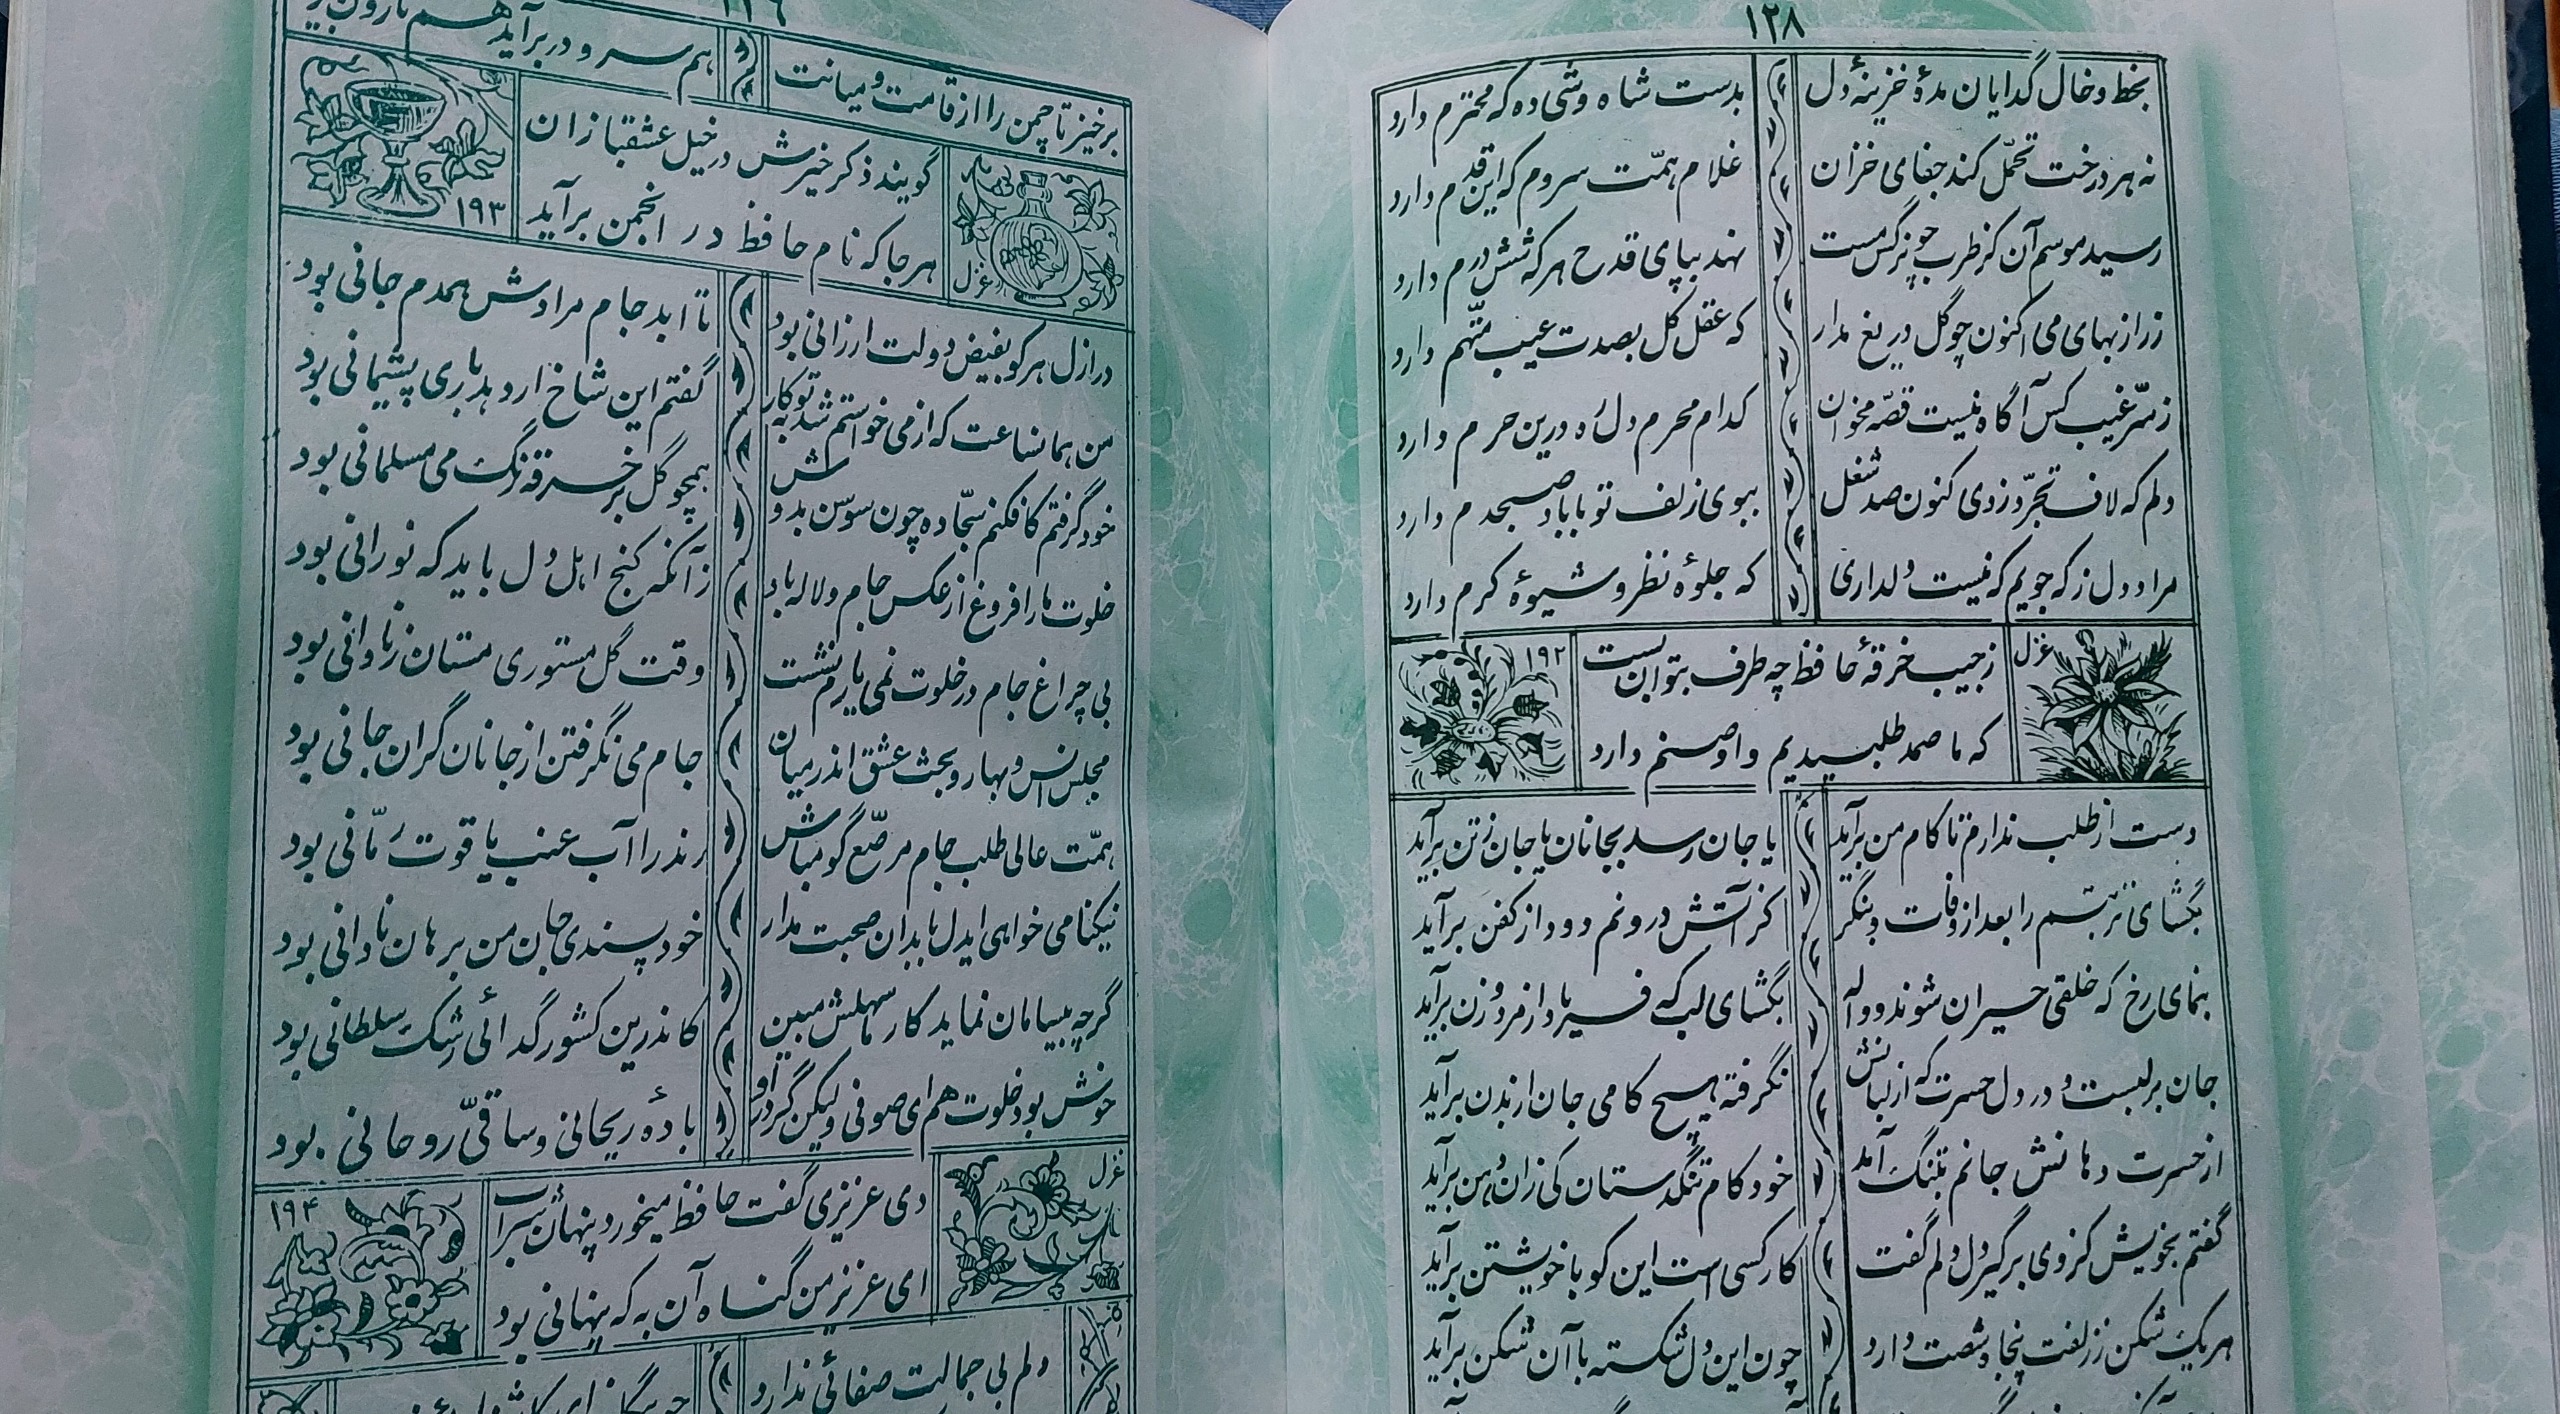 ۱۲۸
بخط و خال گدایان مدهٔ خزینهٔ دل بدست شاه وشی ده که محترم دارد
نه هر درخت تحمّل کند جفای خزان غلام همّت سروم که این قدم دارد
رسید موسم آن کز طرب چو نرگس مست نهد بپای قدح هر که شش درم دارد
زر از بهای می اکنون چو گل دریغ مدار که عقل کل بصدت عیب متّهم دارد
ز سّر غیب کس آگاه نیست قصّه مخوان کدام محرم دل ره درین حرم دارد
دلم که لاف تجرّد زدی کنون صد شغل ببوی زلف تو با باد صبحدم دارد
مراد دل ز که جویم که نیست دلداری که جلوهٔ نظر و شیوهٔ کرم دارد
ز جیب خرقهٔ حافظ چه طرف بتوان بست
که ما صمد طلبیدیم و او صنم دارد
غزل ۱۹۲
دست از طلب ندارم تا کام من برآید یا جان رسد بجانان یا جان ز تن برآید
بگشای تربتم را بعد از وفات و بنگر کز آتش درونم دود از کفن برآید
بنمای رخ که خلقی حیران شوند و واله بگشای لب که فریاد از مرد و زن برآید
جان بر لبست و در دل حسرت که از لبانش نگرفته هیچ کامی جان از بدن برآید
از حسرت دهانش جانم بتنگ آمد خود کام تنگدستان کی زان دهن برآید
گفتم بخویش کز وی برگیر دل دلم گفت کار کسی است این کو با خویشتن برآید
هر یک شکن ز زلفت پنجاه شصت دارد چون این دل شکسته با آن شکن برآید
برخیز تا چمن را از قامت و میانت هم سرو در برآید هم نارون برآید
گویند ذکر خیرش در خیل عشقبازان
هر جا که نام حافظ در انجمن برآید
غزل ۱۹۳
در ازل هر کو بفیض دولت ارزانی بود تا ابد جام مرادش همدم جانی بود
من همانساعت که از می خواستم شد توبه کار گفتم این شاخ ار دهد باری پشیمانی بود
خود گرفتم کافکنم سجّاده چون سوسن بدوش همچو گل بر خرقه رنگ می مسلمانی بود
خلوت ما را فروغ از عکس جام و لاله باد زآنکه کنج اهل دل باید که نورانی بود
بی چراغ جام در خلوت نمی یارم نشست وقت گل مستوری مستان ز نادانی بود
مجلس انس و بهار و بحث عشق اندر میان جام می نگرفتن از جانان گران جانی بود
همّت عالی طلب جام مرصّع گو مباش رند را آب عنب یاقوت رمّانی بود
نیکنامی خواهی ایدل با بدان صحبت مدار خود پسندی جان من برهان نادانی بود
گرچه بیسامان نماید کار ما سهلش مبین کاندرین کشور گدائی رشک سلطانی بود
خوش بود خلوت هم ای صوفی ولیکن گر در او بادهٔ ریحانی و ساقیّ روحانی بود
دی عزیزی گفت حافظ میخورد پنهان شراب
ای عزیز من گناه آن به که پنهانی بود
غزل ۱۹۴
دلم بی جمالت صفائی ندارد